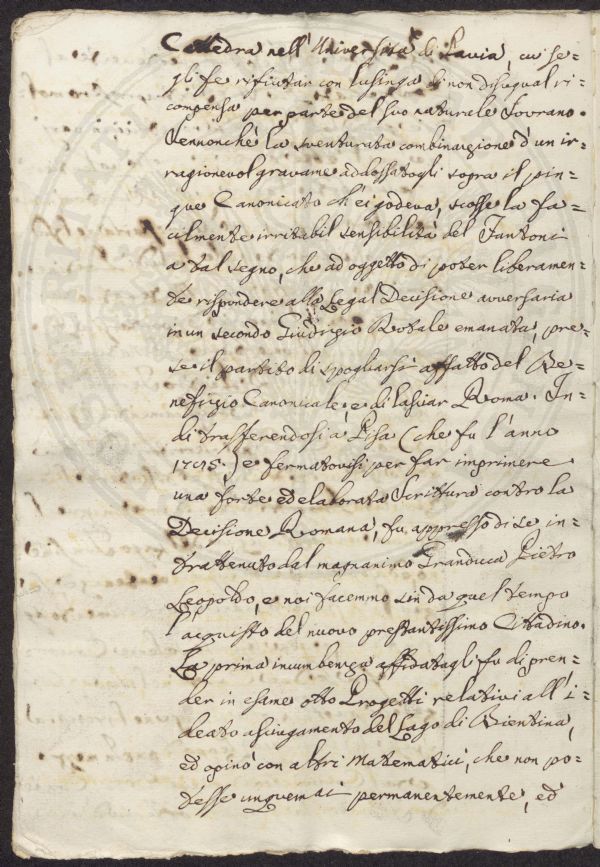 Cattedra nell'Università di Pavia, cui se=
gli fe rifiutar con lusinga di non disugual ri=
compensa per parte del suo naturale Sovrano.
Sennonchè la sventurata combinazione d'un ir=
ragionevol gravame addossatogli sopra il pin=
gue Canonicato ch'ei godeva, scosse la fa=
cilmente irritabil sensibilità del Fantoni
a tal segno, che ad oggetto di poter liberamen=
te rispondere alla Legal Decisione avversaria
in un secondo Giudizio Rotale emanata, pre=
se il partito di spogliarsi affatto del Be=
nefizio Canonicale, e di lasciar Roma. In=
di trasferendosi a Pisa (che fu l'anno
) e fermatovisi per far imprimere
una forte ed elaborata Scrittura contro la
Decisione Romana, fu appresso di se in=
trattenuto dal magnanimo Granduca Pietro
Leopoldo, e noi facemmo sin da quel tempo
l'acquisto del nuovo prestantissimo Cittadino.
La prima incumbenza affidatagli fu di pren=
der in esame otto Progetti relativi all'i=
deato asciugamento del Lago di Bientina,
ed opinò con altri Matematici, che non po=
tesse unquemai permanentemente, ed